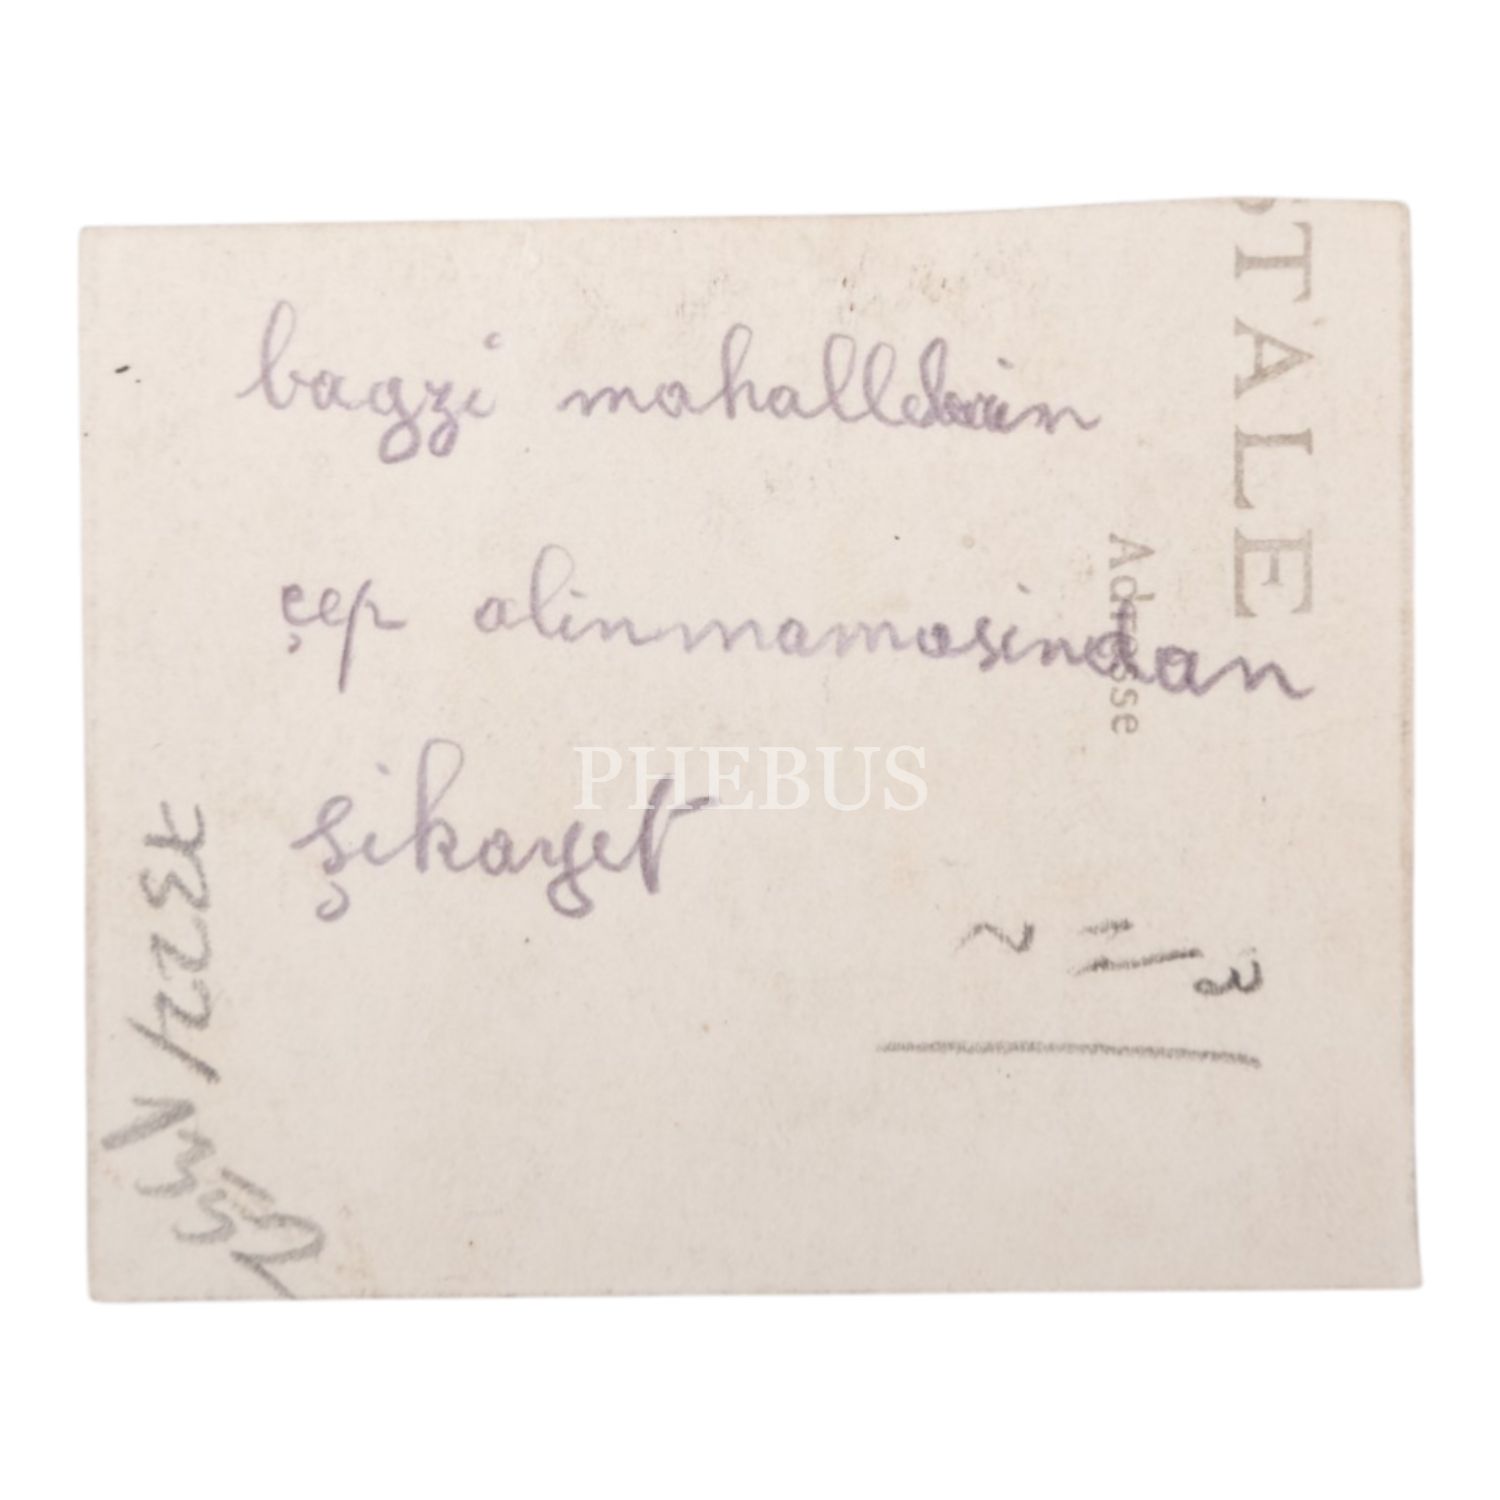 bagzi mahallelerin
çep alinmamasindan
şikayet
STALE
Adresse
PHEBUS